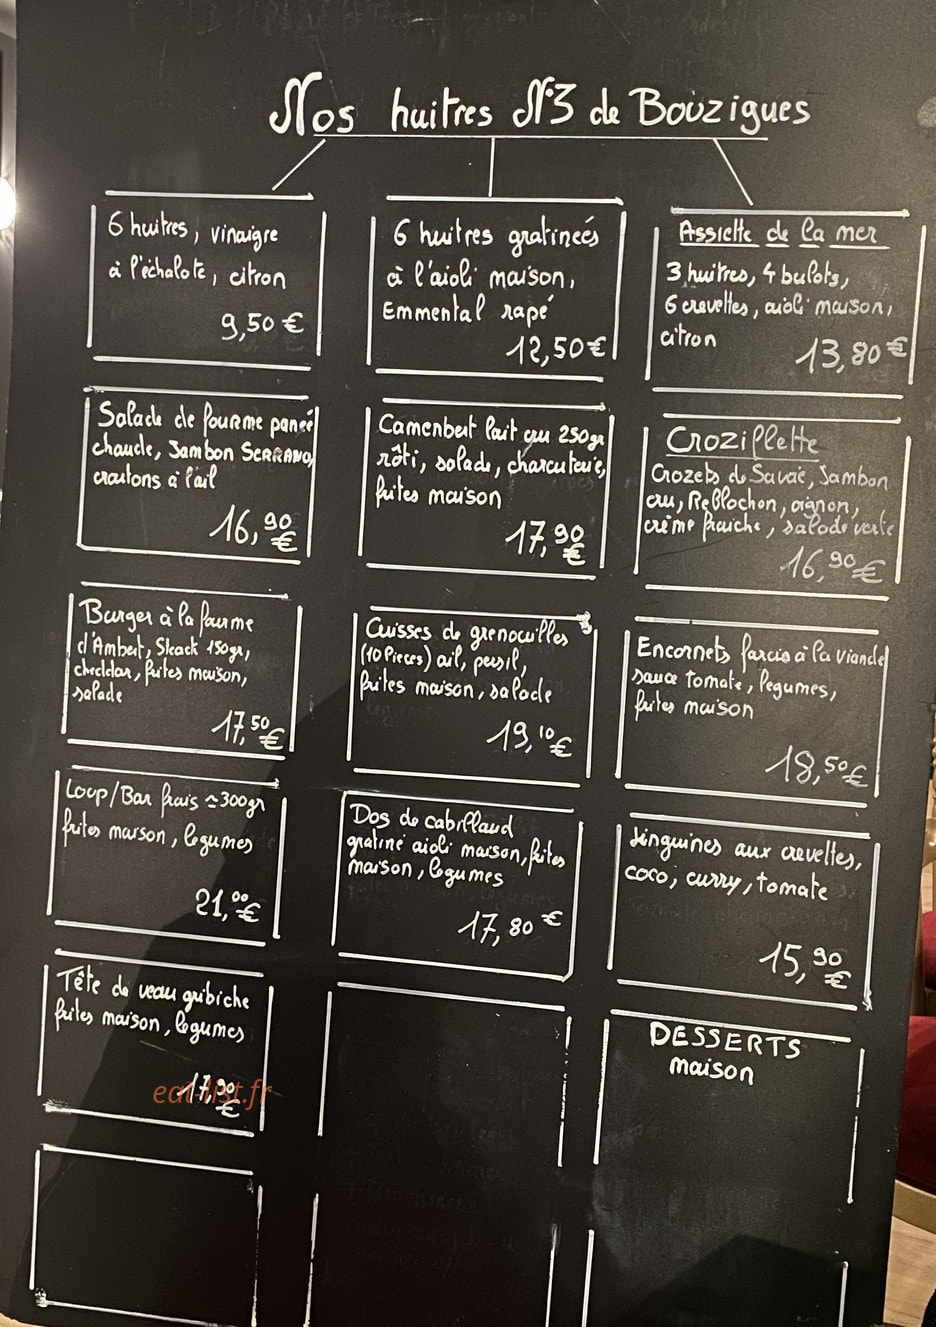 Nos huitres N°3 de Bouzigues
6 huitres, vinaigre
à l'échalote, citron
9,50 €
6 huitres gratineés
à l'aioli maison,
Emmental rapé
12,50 €
Assiette de la mer
3 huitres, 4 bulots,
6 crevettes, aioli maison,
citron
13,80 €
Salade de fourme panée
chaude, Jambon SERRANO,
croutons à l'ail
16,90 €
Camenbert lait cru 250gr
rôti, salade, charcuterie,
frites maison
17,90 €
Croziflette
Crozets de Savoie, Jambon
cru, Reblochon, oignon,
crème fraiche, salade verte
16,90 €
Burger à la fourme
d'Ambert, Steack 150gr,
cheddar, frites maison,
salade
17,50 €
Cuisses de grenouilles
(10 Pieces) ail, persil,
frites maison, salade
19,10 €
Encornets farcis à la viande
sauce tomate, legumes,
frites maison
18,50 €
Loup/Bar frais ≈300gr
frites maison, legumes
21,00 €
Dos de cabillaud
gratiné aioli maison, frites
maison, legumes
17,80 €
Linguines aux crevettes,
coco, curry, tomate
15,90 €
Tête de veau gribiche
frites maison, legumes
17,90 €
eat-list.fr
DESSERTS
maison